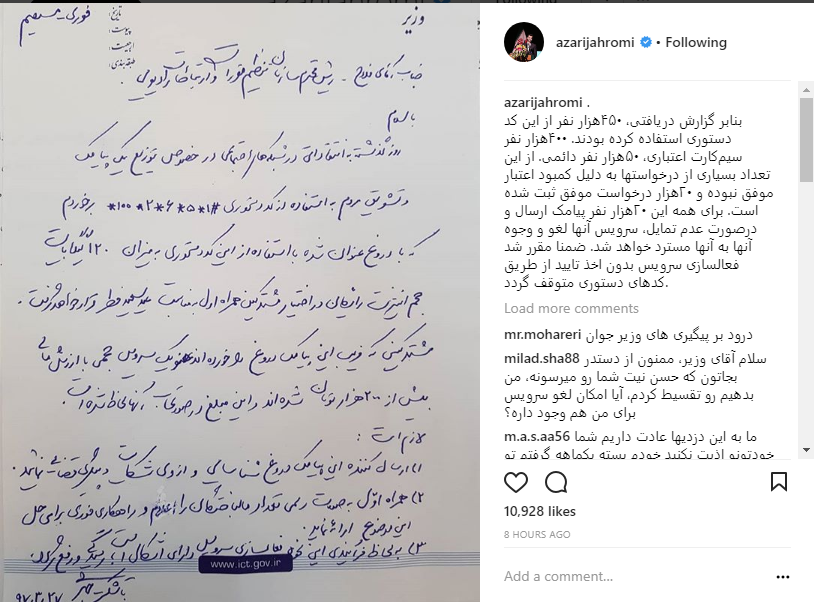 وزیر
تاریخ:
پیوست:
اهمیت:
طبقه‌بندی:
فوری - مستقیم
جناب آقای فلاح - رییس محترم سازمان تنظیم مقررات و ارتباطات رادیویی
با سلام
روز گذشته به انتقاداتی در شبکه‌های اجتماعی در خصوص توزیع یک پیامک
و تشویق مردم به استفاده از کد دستوری #۱*۵*۶*۲*۱۰۰* برخوردم
که با دروغ عنوان شده با استفاده از این کد دستوری به میزان ۱۲۰ گیگابایت
حجم اینترنت رایگان در اختیار مشترکین همراه اول به مناسبت عید سعید فطر قرار خواهد گرفت.
مشترکینی که فریب این پیامک دروغ را خورده‌اند عضو یک سرویس حجمی با ارزش مالی
بیش از ۲۰۰ هزار تومان شده‌اند و این مبلغ در صورتحساب آنها لحاظ شده است.
لازم است:
۱) ارسال کننده این پیامک دروغ شناسایی و از وی شکایت و پیگیری قضایی نمایید.
۲) همراه اول به صورت رسمی تعداد مالباختگان را اعلام و راهکاری فوری برای حل
این موضوع ارائه نماید.
۳) به لحاظ فرآیندی این نحوه فعالسازی سرویس دارای اشکال است پیگیری و رفع گردد.
با تشکر
۹۷.۳.۲۷
www.ict.gov.ir
azarijahromi • Following
azarijahromi .
بنابر گزارش دریافتی، ۴۵۰هزار نفر از این کد
دستوری استفاده کرده بودند. ۴۰۰هزار نفر
سیم‌کارت اعتباری، ۵۰هزار نفر دائمی. از این
تعداد بسیاری از درخواستها به دلیل کمبود اعتبار
موفق نبوده و ۲۰هزار درخواست موفق ثبت شده
است. برای همه این ۲۰هزار نفر پیامک ارسال و
درصورت عدم تمایل، سرویس آنها لغو و وجوه
آنها به آنها مسترد خواهد شد. ضمنا مقرر شد
فعالسازی سرویس بدون اخذ تایید از طریق
کدهای دستوری متوقف گردد.
Load more comments
mr.mohareri درود بر پیگیری های وزیر جوان
milad.sha88 سلام آقای وزیر، ممنون از دستدر
بجاتون که حسن نیت شما رو میرسونه، من
بدهیم رو تقسیط کردم، آیا امکان لغو سرویس
برای من هم وجود داره؟
m.a.s.aa56 ما به این دزدیها عادت داریم شما
خودتونو اذیت نکنید خودم بسته یکماهه گرفتم تو
10,928 likes
8 HOURS AGO
Add a comment...